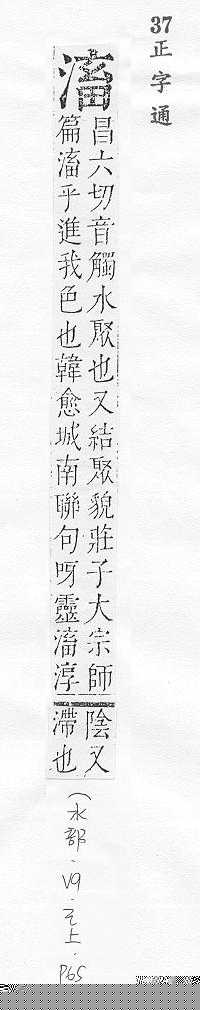 37正字通
滀
昌六切音觸水聚也又結聚貌莊子大宗師
篇滀乎進我色也韓愈城南聯句呀靈滀渟
陰又
滯也
(水部.V9.已上.P65